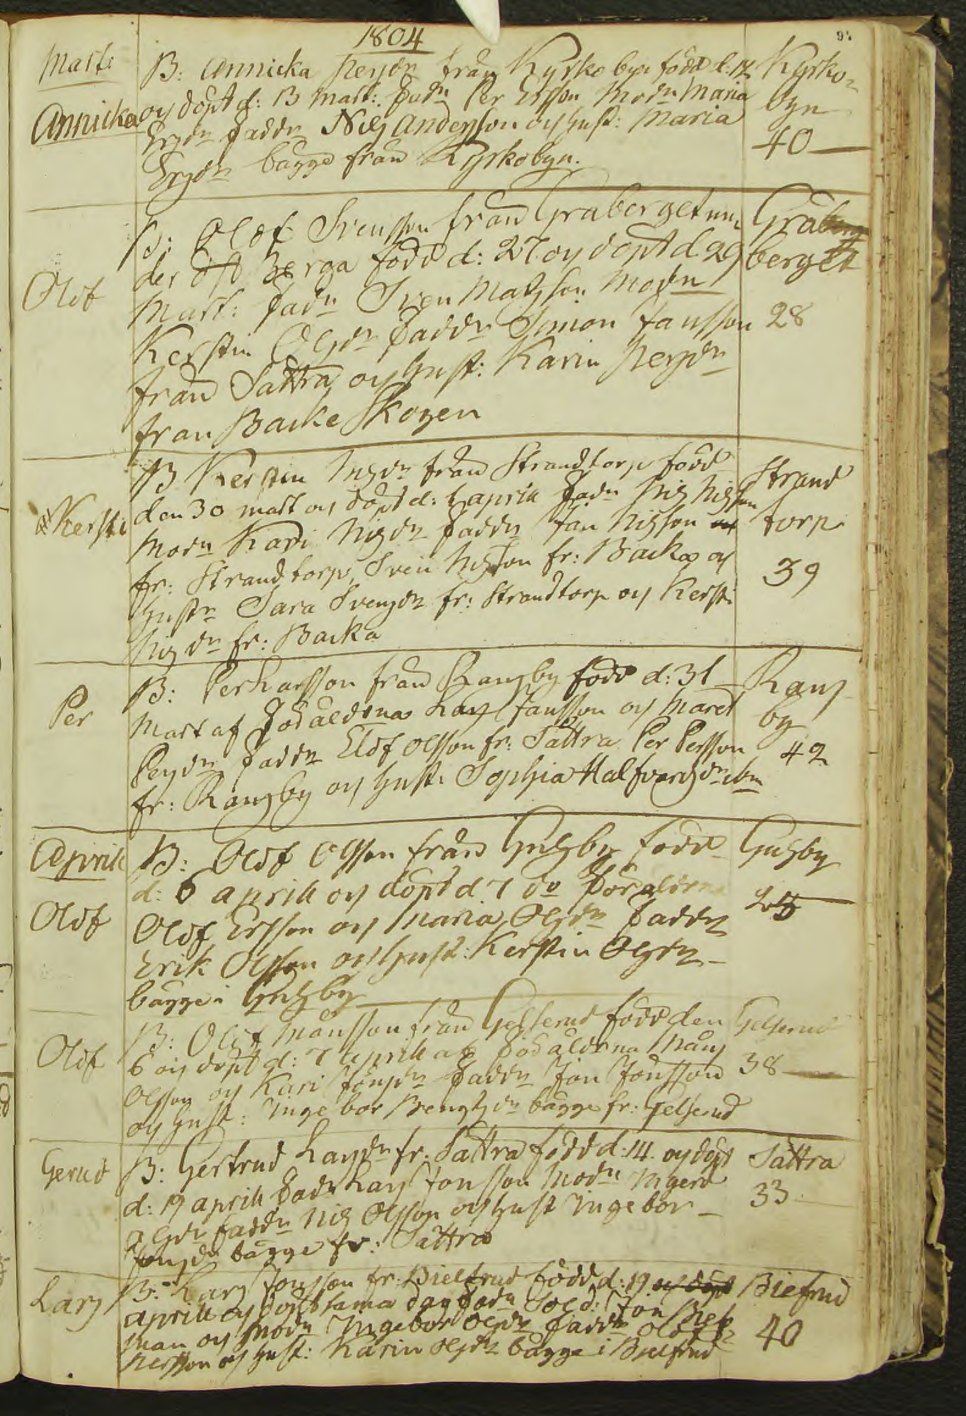 1804
Marti B: Annicka Persdr från Kyrko byn född d. 12 Kyrko-
Annicka och döpt d: 13 Mart: Fadn Per Ersson Modn Maria byn
Ersdr Faddr Nils Andersson och hust: Maria 40
Ersdr bägge från Kyrkobyn.
B: Olof Svensson från Graberget un- Gråberg
der Berga född d: 27 och döpt d 29 berget
Olof Mart: Fadn Sven Matsson Modn
Kerstin Olsdr Faddr Simon Jansson 28
från Sättra och hust: Karin Persdr
från Backe Skogen
B Kerstin Nilsdr från Strandtorp född Strand
Kersti den 30 mart och döpt d: 1 aprill Fadn Nils Nilsson torp
Modn Kari Nilsdr Faddr Jan Nilsson
fr: Strandtorp, Sven Nilsson fr: Backa och 39
hustr Sara Svensdr fr: Strandtorp och Kersti
Nilsdr fr: Backa
B: Per Larsson från Ransby född d: 31 Rans
Per Mart af Föräldrna Lars Jansson och Maret by
Persdr Faddr Elof Olsson fr: Sättra Per Persson 42
fr: Ransby och hust: Sophia Halfvardsdr ibm
Aprill B: Olof Olsson från Gulsby född Gulsby
d: 6 aprill och döpt d 7 do Föraldrna
Olof Olof Ersson och Maria Olsdr Faddr
Erik Olsson och hust: Kerstin Olsdr
bägge i Gulsby
B: Olof Månsson från Gelserud född den Gelserud
Olof 6 och döpt d: 7 Aprill af Föräldrna Måns 38
Olsson och Kari Jönsdr Faddr Jon Jönsson
och hust: Inge bor Bengtsdr bägge fr: Gelserud
Gerud B: Gertrud Larsdr fr: Sättra född d: 14 och döpt Sättra
d: 19 aprill Fadr Lars Jonsson Modn Ingerd 33
Olsdr Faddr Nils Olsson och hust Ingebor
Jonsdr bägge fr: Sättra
Lars B: Lars Jonsson fr: Bielfrud född d: 19 och döpt Biefrud
aprill och döpt sama dag Fadn Sold: Jon
man och Modn Ingebor Olsdr Faddr Olof 40
Persson och hust: Karin Olsdr bägge i Bielfrud